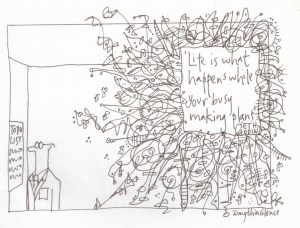 Life is what
happens while
your busy
making plans
TODO
LIST